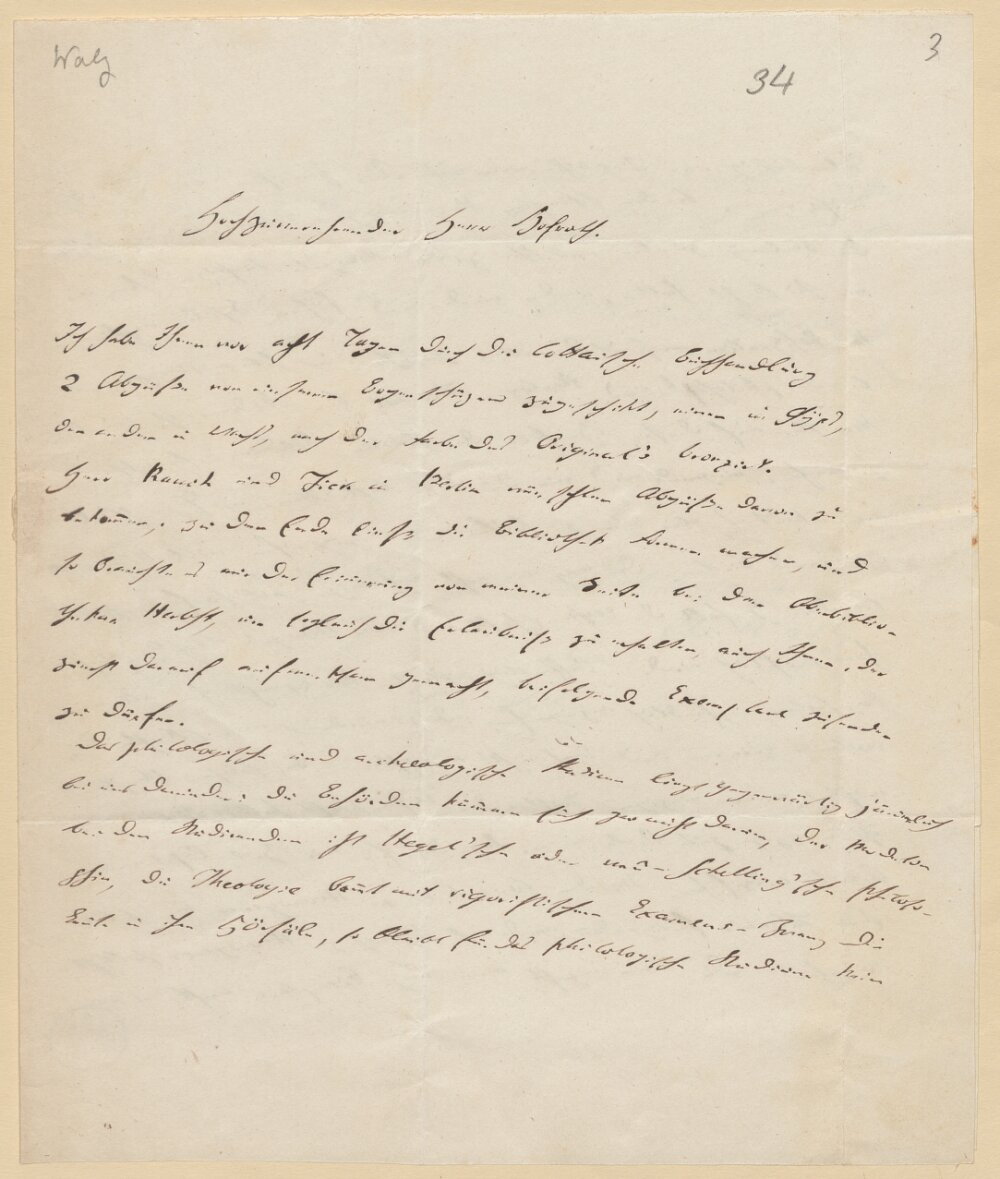 Walz
34
3
Hochzuverehrender Herr Hofrath.
Ich habe Ihnen vor acht Tagen durch die Cottaische Buchhandlung
2 Abgüße von unserem Bogenschüzen zugeschikt, einen in Gyps,
den andern in Wachs, nach der Farbe des Original's bronzirt.
Herr Rauch und Tieck in Berlin wünschten Abgüße davon zu
bekommen; zu dem Ende ließ die Bibliothek Formen machen, und
so brauchte es nur der Erinnerung von meiner Seite bei dem Oberbiblio-
thekar Herbst, um sogleich die Erlaubniß zu erhalten, auch Ihnen, der
zuerst darauf aufmerksam gemacht, beifolgende Exemplare zusenden
zu dürfen.
Das philologische und archeologische Studium liegt gegenwärtig jämmerlich
bei uns darnieder: die Behörden kümmern sich gar nicht darum, der Modeton
bei den Studirenden ist Hegel'sche oder neu-Schelling'sche Philoso-
phie, die Theologie bannt mit rigoristischem Examens-Zwang die
Leute in ihre Hörsäle, so bleibt für das philologische Studium kein